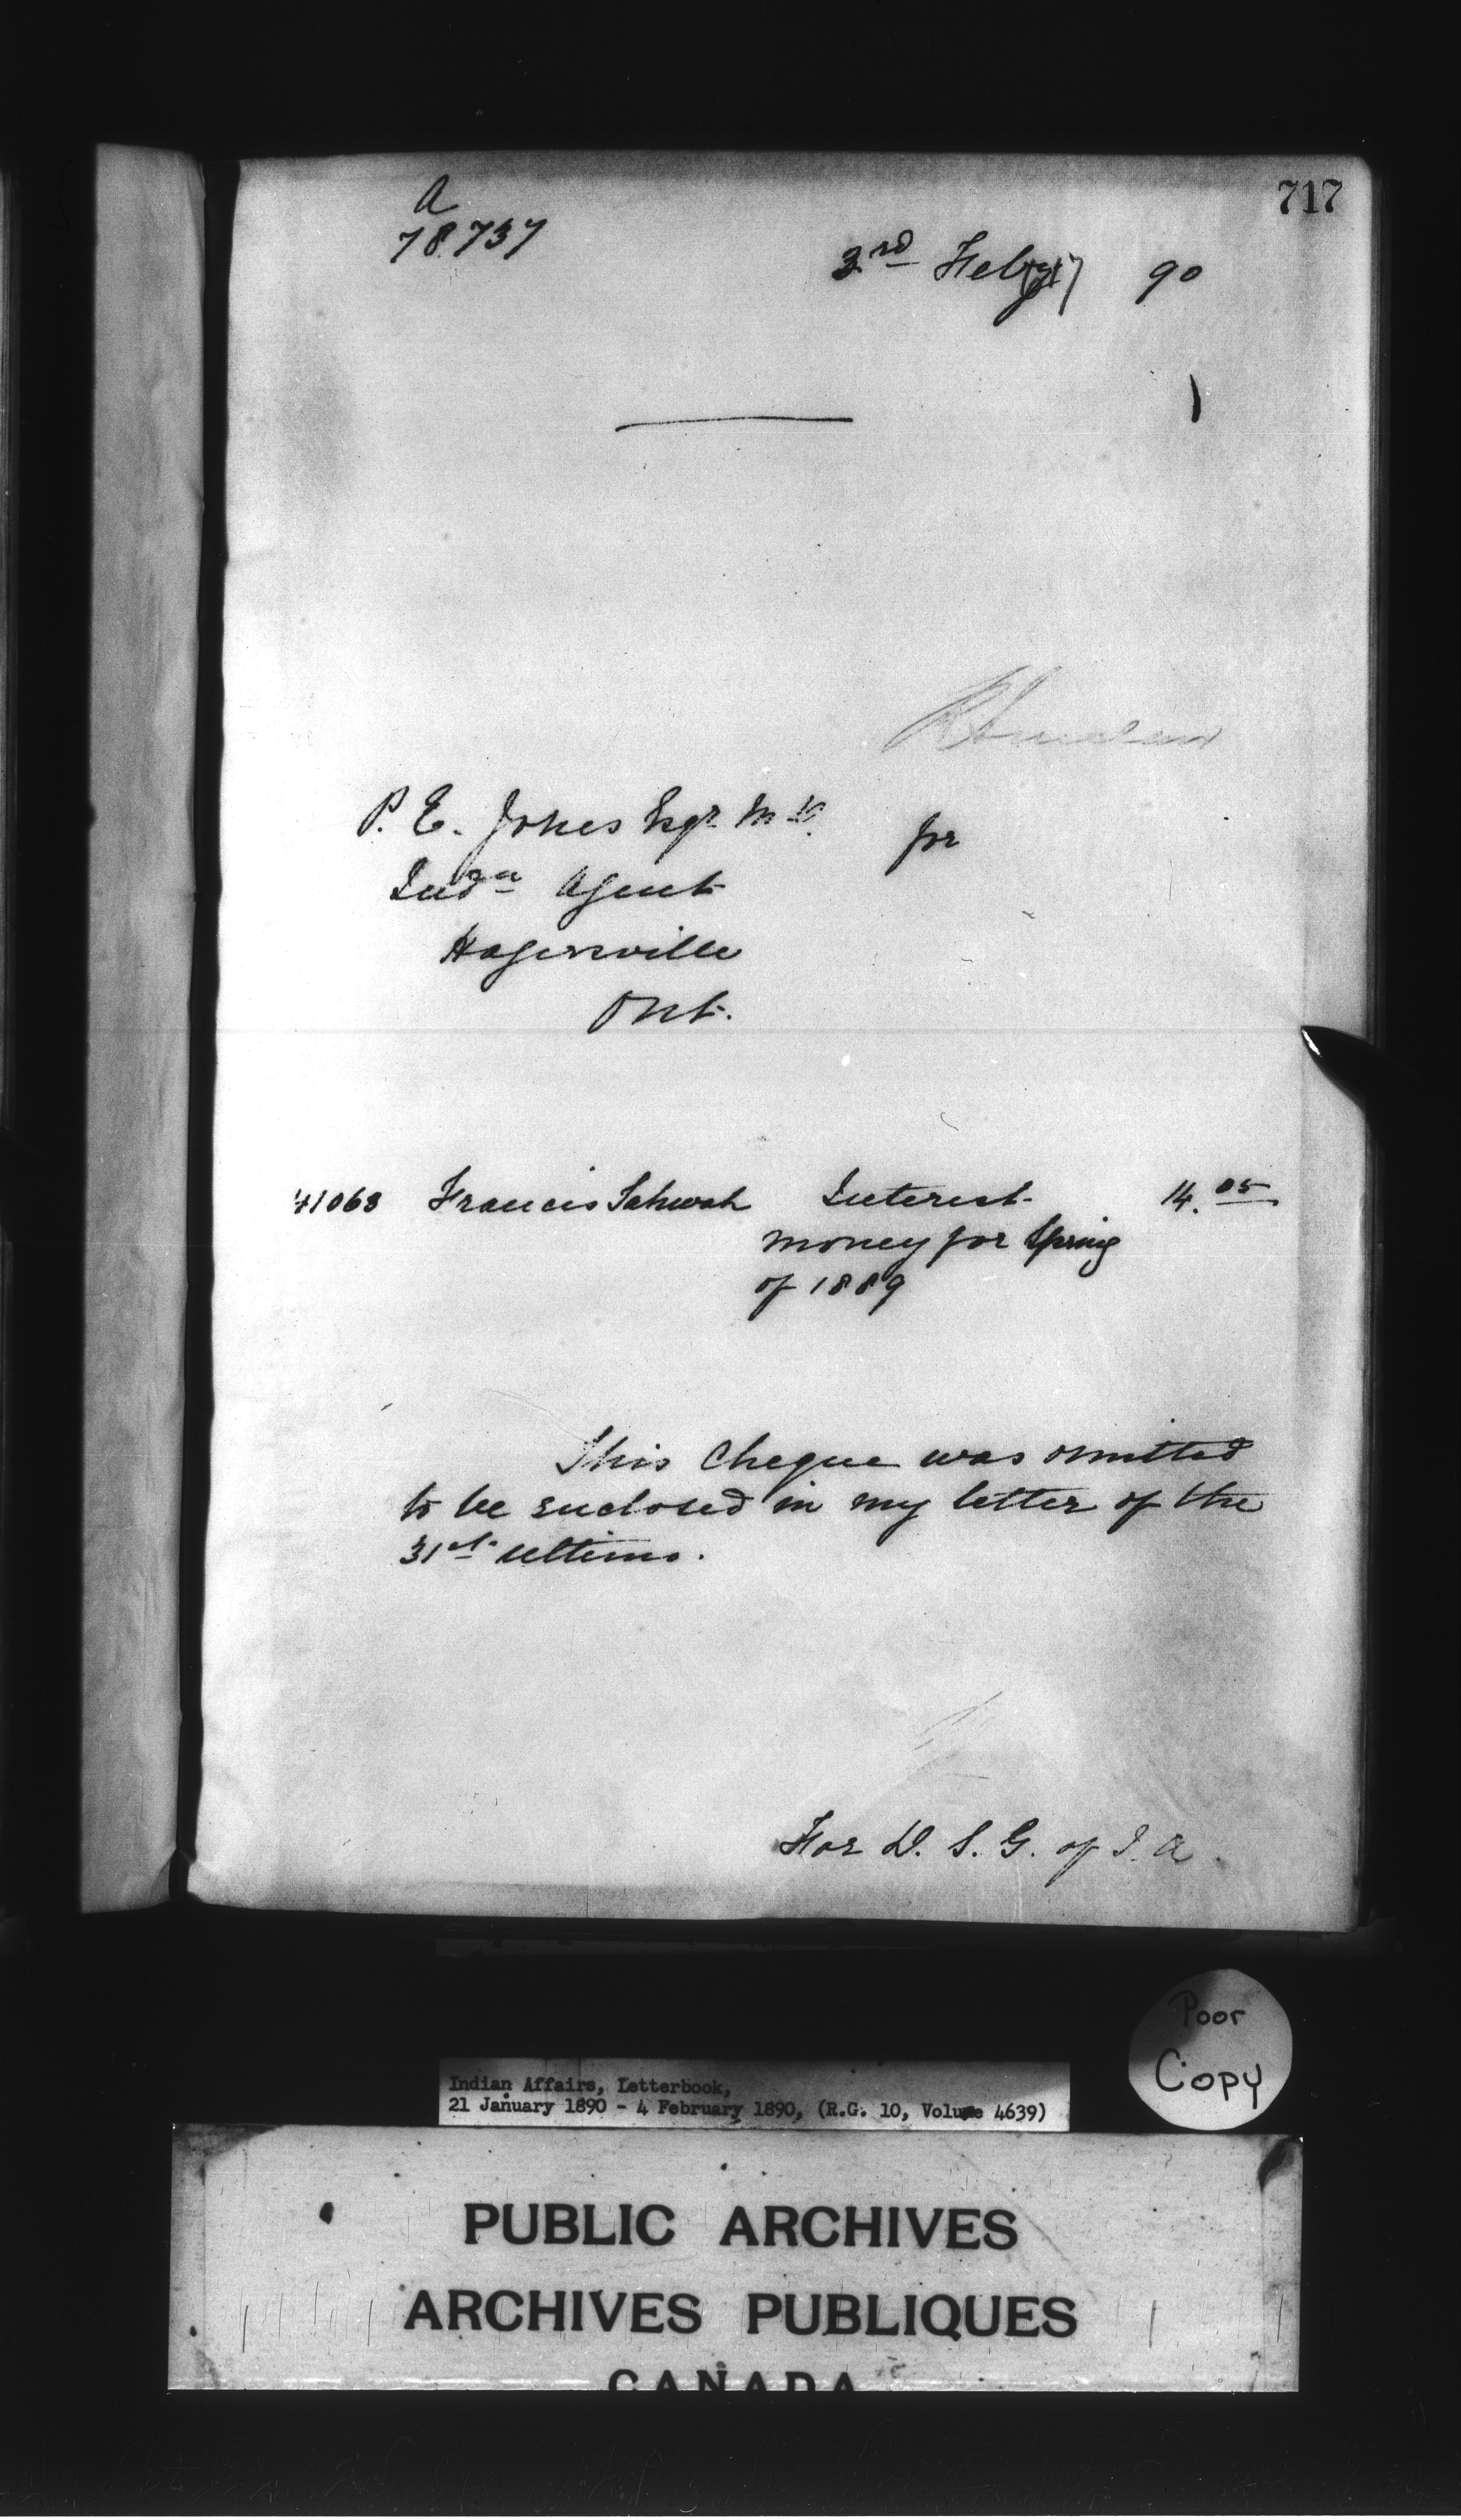 717
A
78.737
3rd Feby 717 90
P. E. Jones Esqr M.D.
for
Indn Agent
Hagersville
Ont.
41063 Francis Sahwah Interest 14.05
money for Spring
of 1889
This Cheque was omitted
to be enclosed in my letter of the
31st ultimo.
For D. S. G. of I. A.
Poor
Copy
Indian Affairs, Letterbook,
21 January 1890 - 4 February 1890, (R.G. 10, Volume 4639)
PUBLIC ARCHIVES
ARCHIVES PUBLIQUES
CANADA